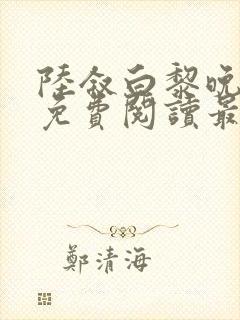 陸叙白黎晚
免費閱讀最
鄭清海